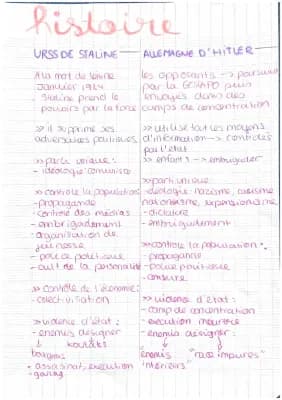 histoire
URSS DE STALINE
A la mort de Lénine
Janvier 1924
Staline prend le
pouvoirs par la force
>> il supprime ses
adversaires politiques
>> parti unique :
- idéologie communisme
>> contrôle la population
- propagande
- contrôle des médias
- embrigadement
- organisation de
jeunesse
- police politique
- cult de la personalité
>> contrôle de l'économie :
- collectivisation
>> violence d'état :
- enemis désigner
↳ koulaks
bourgeois
- assasinat, execution
- goulag
ALLEMAGNE D'HITLER
les opposants → poursuivi
par la GESTAPO puis
envoyés dans des
camps de concentration
>> utilise tout les moyens
d'information → contrôlés
par l'état
>> enfants → embrigader
>> parti unique
- idéologie : nazisme, racisme
nationalisme, expansionisme
- dictature
- embrigadement
>> contrôle la population :
- propagande
- police politique
- censure
>> violence d'état :
- camp de concentration
- execution meurtre
- enemis désigner :
enemis "race impures"
"intérieurs"